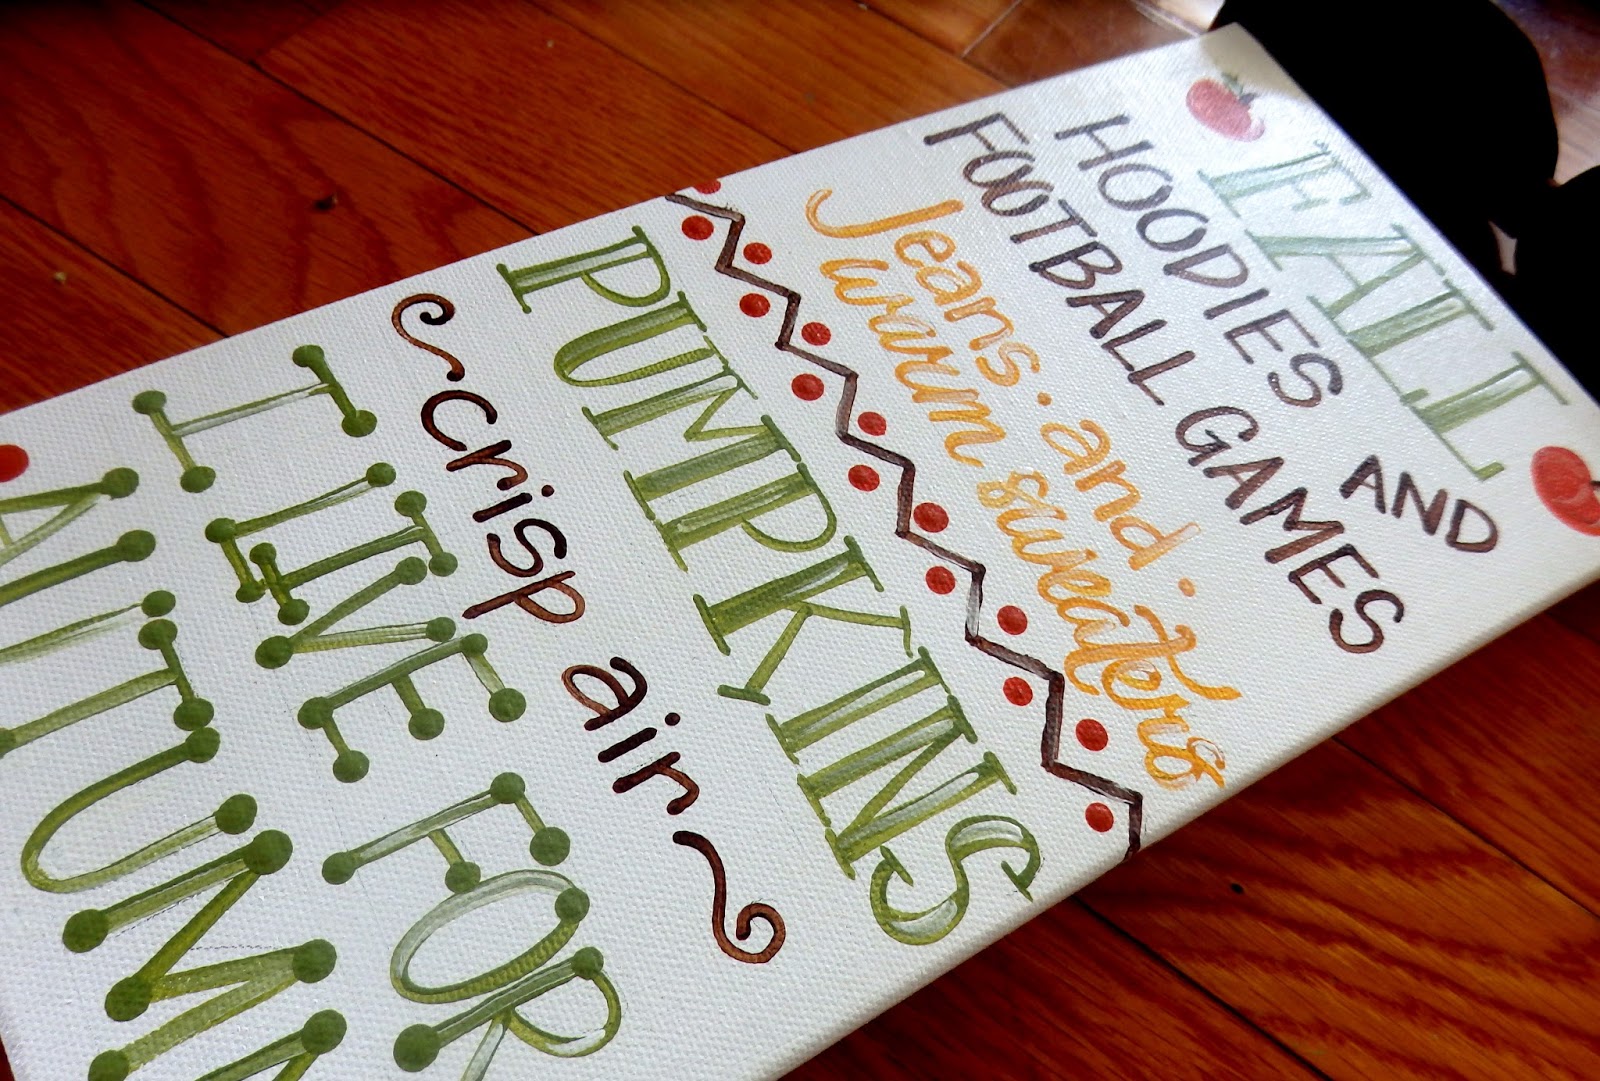 FALL
HOODIES AND
FOOTBALL GAMES
Jeans . and .
warm sweaters
PUMPKINS
crisp air
I LIVE FOR
AUTUMN